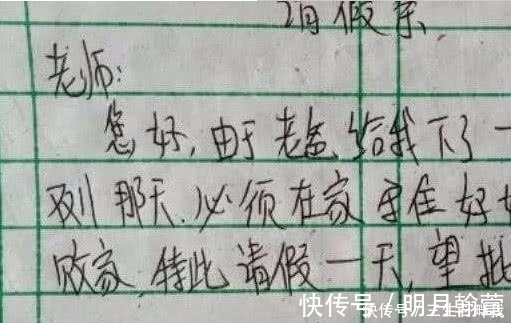 请假条
老师:
您好,由于老给我下了一
双11那天.必须在家住好
败家,特此请假一天,望批
快传号/明月翰萱
快传号